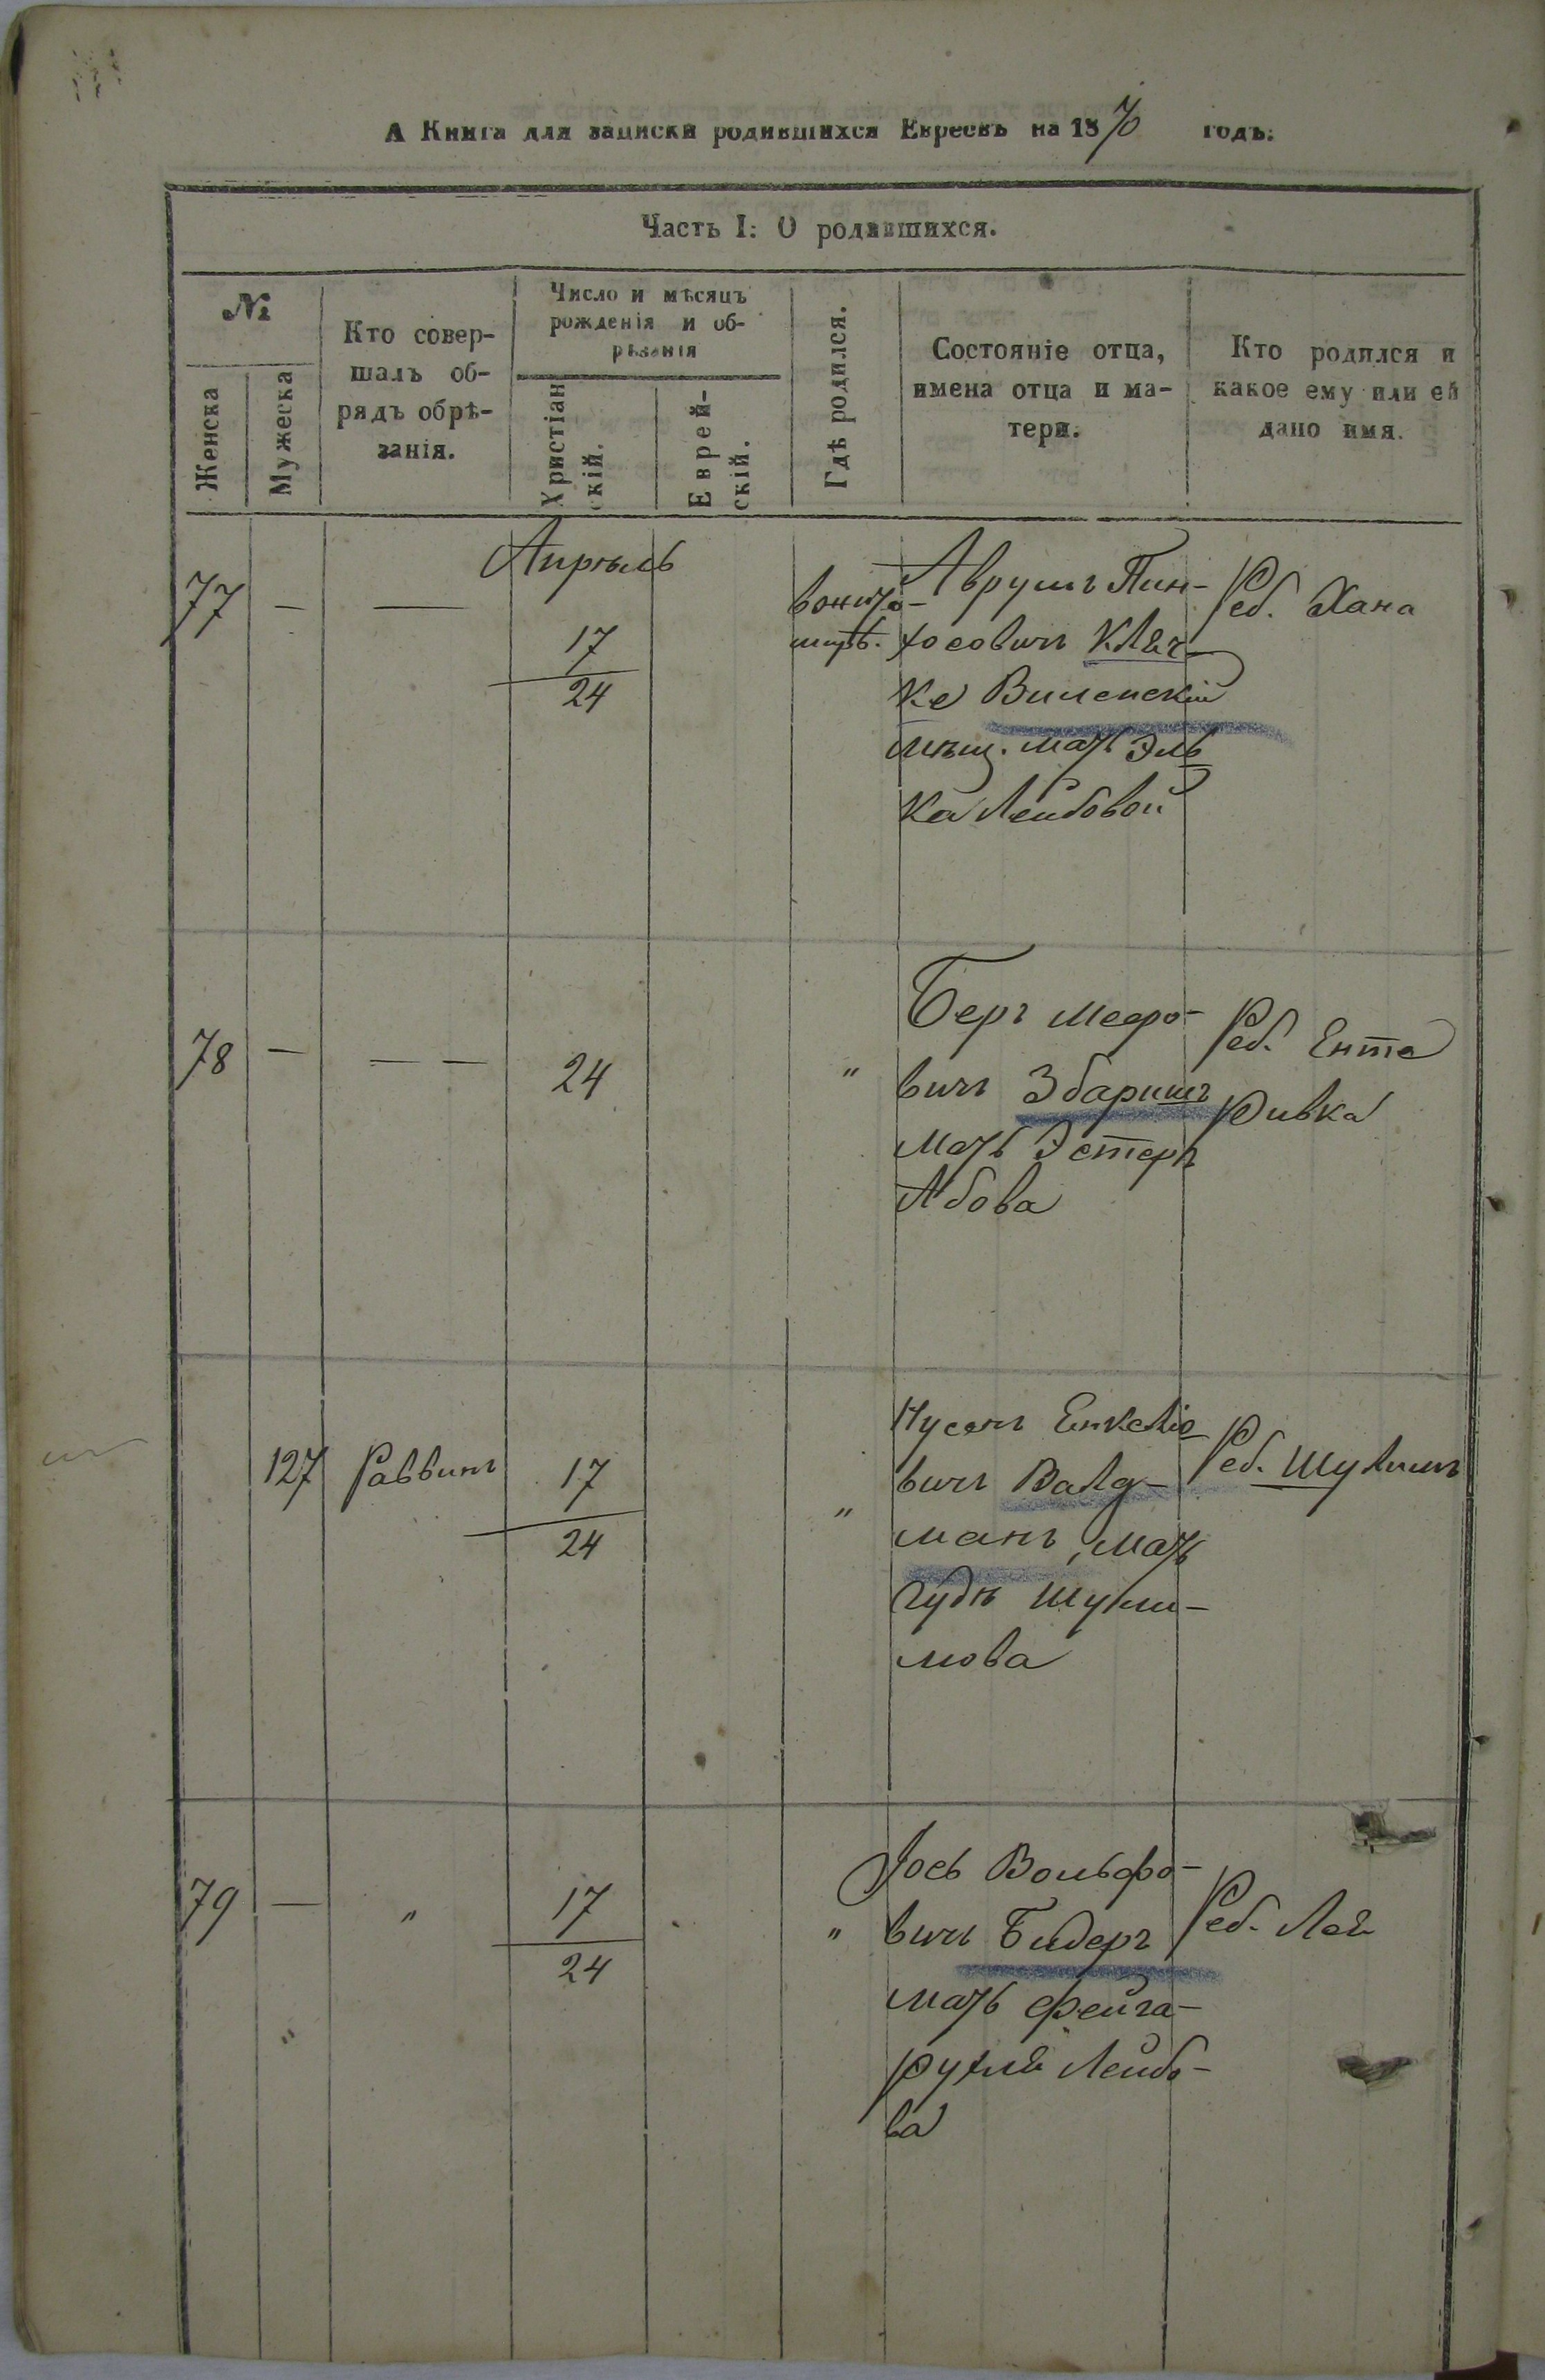 А Книга для записки родившихся Евреевъ на 1870 годъ.
Часть I: О родившихся.
№
Женска
Мужеска
Кто совер-
шалъ об-
рядъ обрѣ-
занія.
Число и мѣсяцъ
рожденія и об-
рѣзанія
Христіан
скій.
Еврей-
скій.
Гдѣ родился.
Состояніе отца,
имена отца и ма-
тери.
Кто родился и
какое ему или ей
дано имя.
Апрѣль
77 — — 17
24
Аврумъ Пин-
хосовичъ Кляч-
ке Виленскій
мѣщ. мать Эль
ка Лейбовой
Реб. Хана
78 — — — 24 "
Беръ Мееро-
вичъ Збаришъ
мать Эстеръ
Абова
Реб. Ента
Ривка
127 Раввинъ 17
24 "
Нусонъ Енкеліо
вичъ Валд-
манъ, мать
Гудѣ Шули-
мова
Реб. Шулимъ
79 — " 17
24 "
Іось Вольфо-
вичъ Бидеръ
мать Фейга-
Рухля Лейбо-
ва
Реб. Лея
"